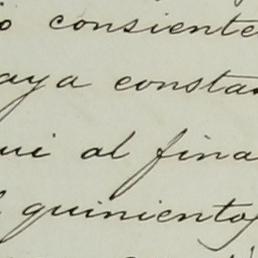 o consiente
aya consta
ui al fina
quinientos